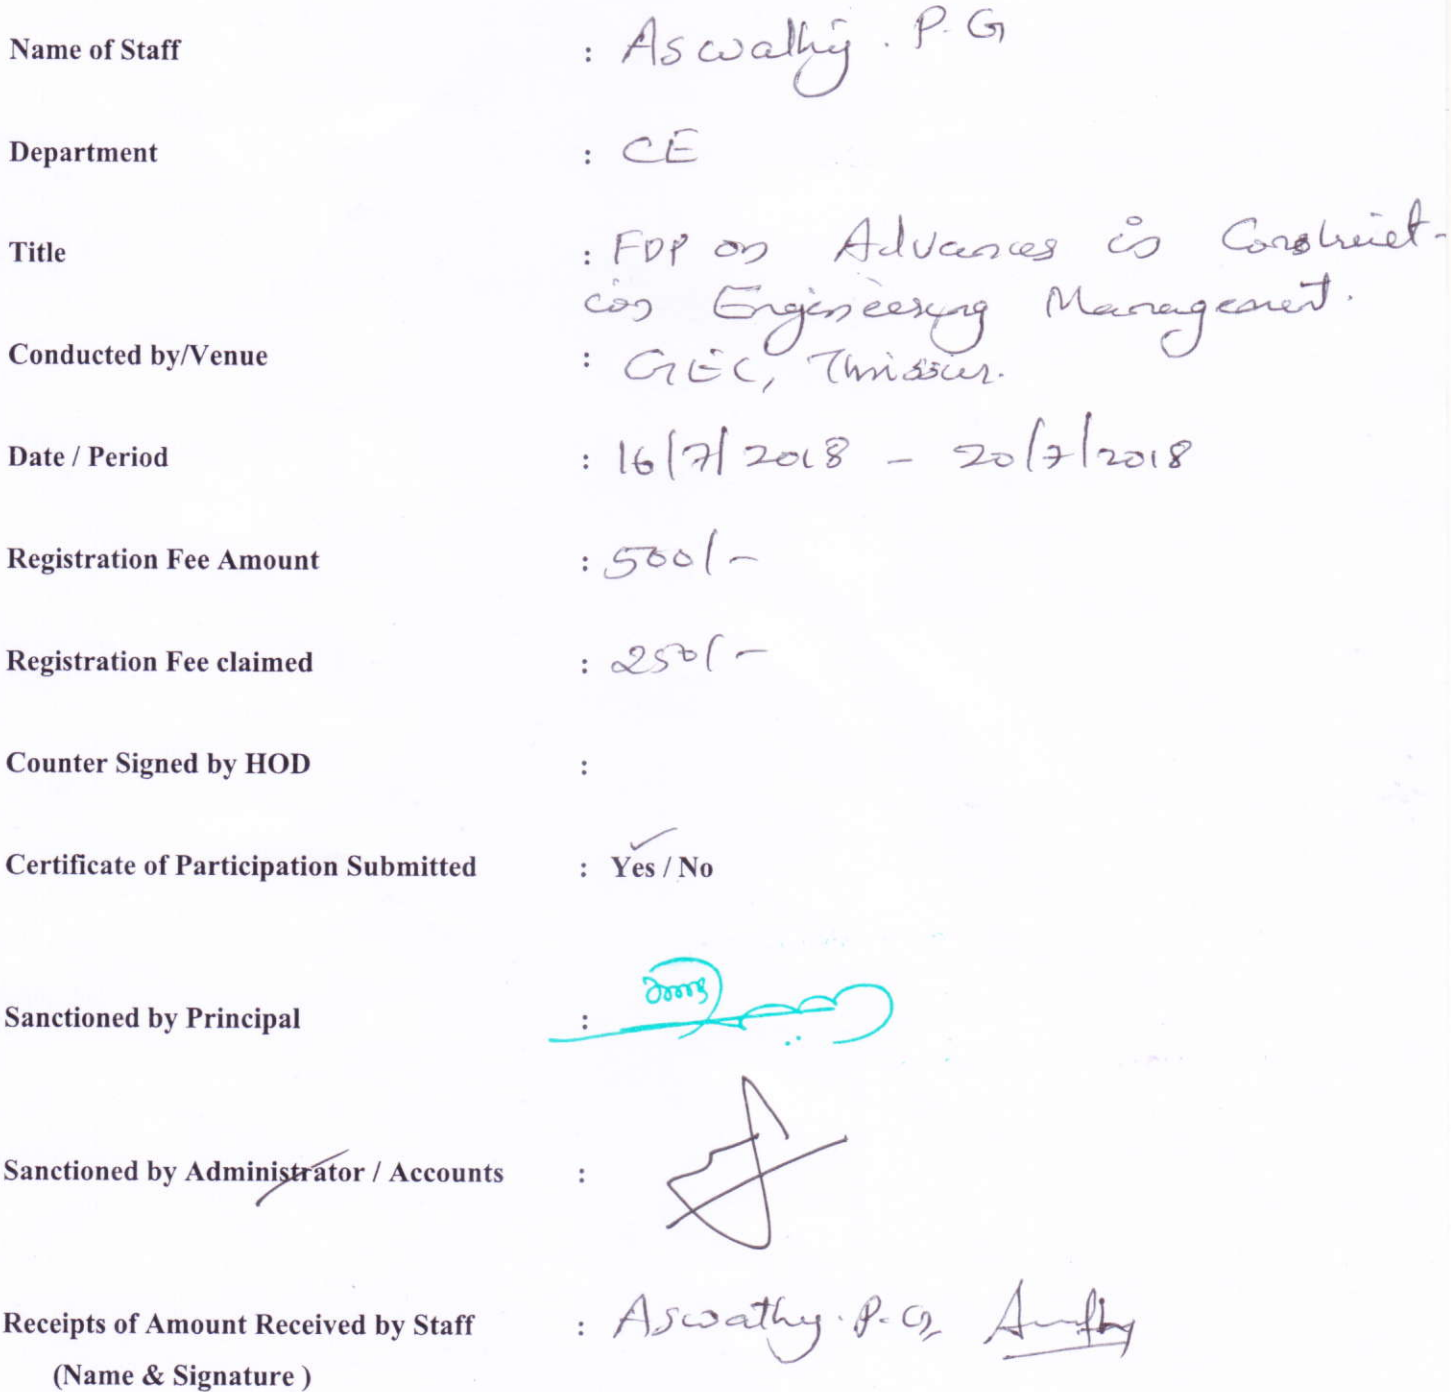 Name of Staff : Aswathy. P. G
Department : CE
Title : FDP on Advances in Construct-
ion Engineering Management.
Conducted by/Venue : GEC, Thrissur.
Date / Period : 16/7/2018 - 20/7/2018
Registration Fee Amount : 500/-
Registration Fee claimed : 250/-
Counter Signed by HOD :
Certificate of Participation Submitted : Yes / No
Sanctioned by Principal :
Sanctioned by Administrator / Accounts :
Receipts of Amount Received by Staff : Aswathy. P. G,
(Name & Signature )